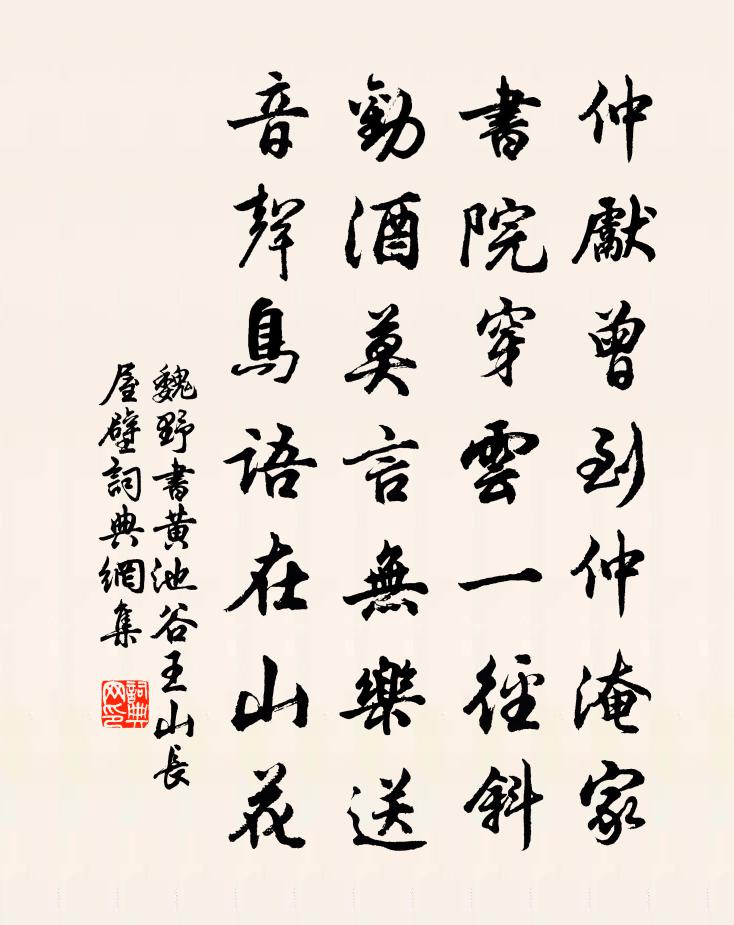 仲獻曾到仲淹家
書院穿雲一徑斜
勸酒莫言無樂送
音聲鳥語在山花
魏野書黄池谷王山長
屋壁詞典網集
詞典网印